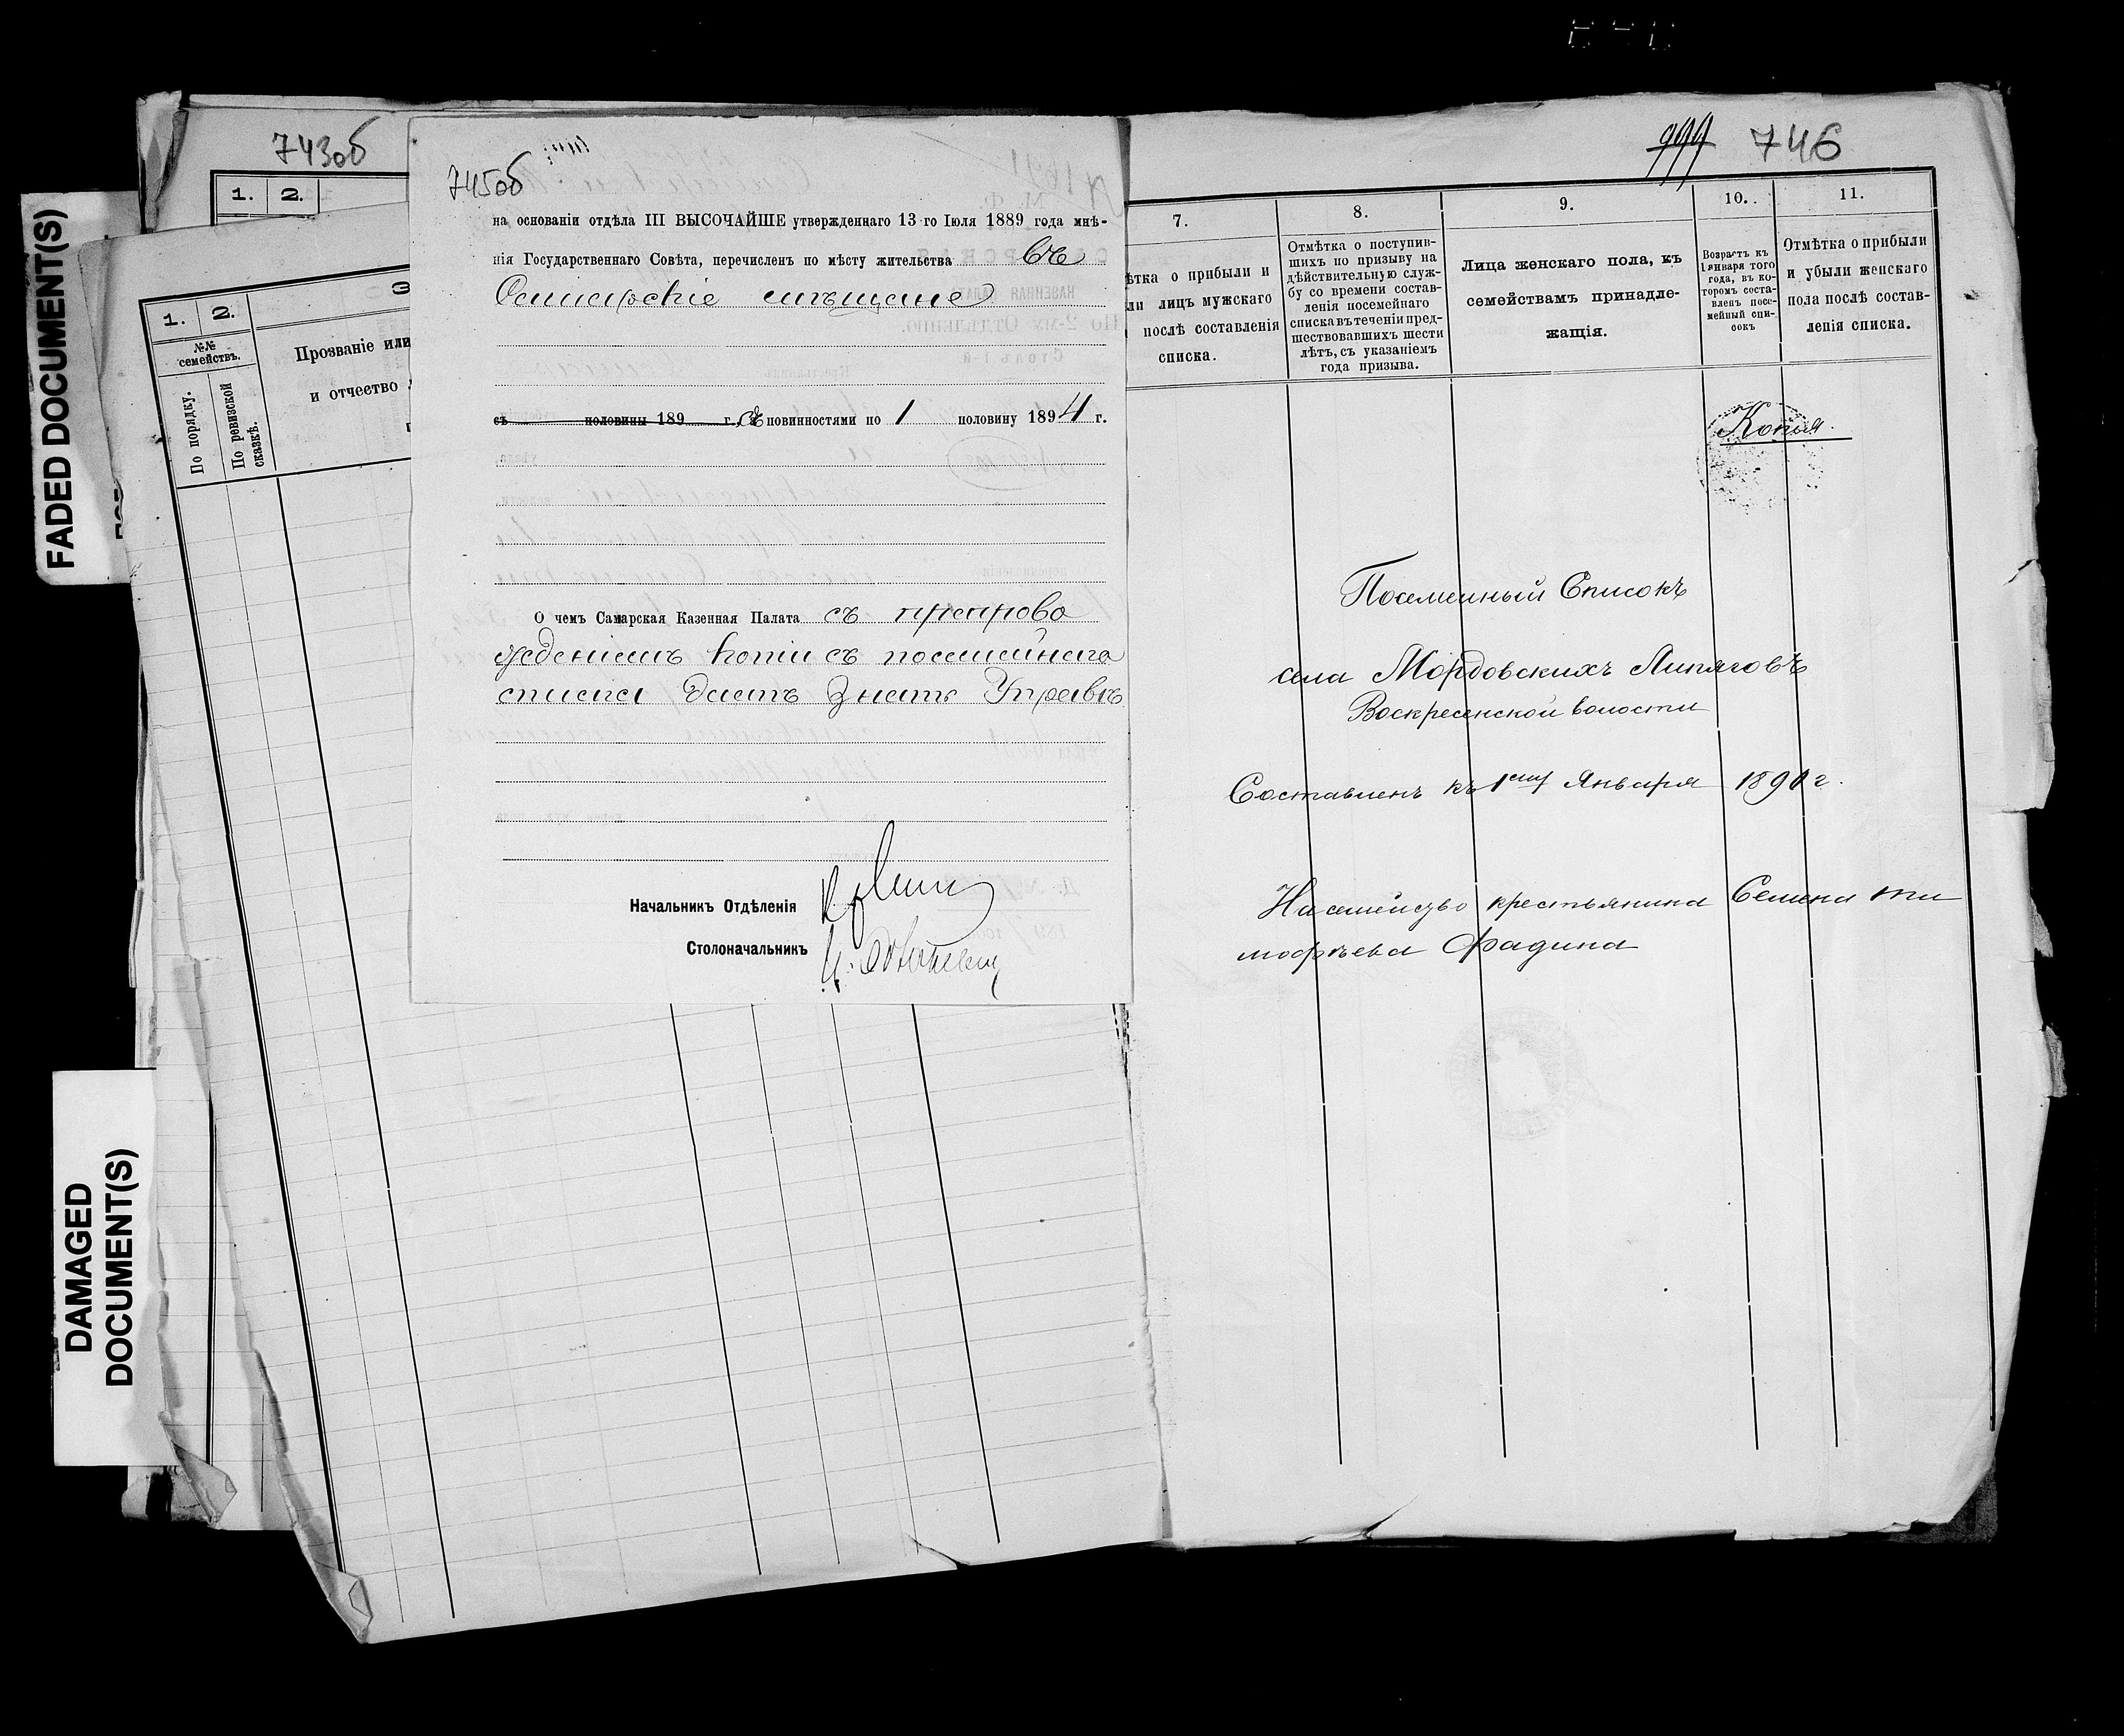 FADED DOCUMENT(S)
DAMAGED
DOCUMENT(S)
743об
1. 2.
1. 2.
№№
семействъ.
По порядку.
По ревизской
сказкѣ.
Прозваніе или
и отчество
745об
на основаніи отдѣла III ВЫСОЧАЙШЕ утвержденнаго 13-го Іюля 1889 года мнѣ-
нія Государственнаго Совѣта, перечисленъ по мѣсту жительства въ
Самарскіе мѣщане
съ половины 189 г., съ повинностями по 1 половину 1894 г.
О чемъ Самарская Казенная Палата съ препрово
жденіемъ копіи съ посемейнаго
списка даетъ знать Управѣ
Начальникъ Отдѣленія
Столоначальникъ
999 746
7. 8. 9. 10. 11.
ѣтка о прибыли и
ли лицъ мужскаго
послѣ составленія
списка.
Отмѣтка о поступив-
шихъ по призыву на
дѣйствительную служ-
бу со времени состав-
ленія посемейнаго
списка въ теченіи пред-
шествовавшихъ шести
лѣтъ, съ указаніемъ
года призыва.
Лица женскаго пола, къ
семействамъ принадле-
жащія.
Возрастъ къ
1 января того
года, въ ко-
торомъ соста-
вленъ посе-
мейный спи-
сокъ
Отмѣтка о прибыли
и убыли женскаго
пола послѣ состав-
ленія списка.
Копія.
Посемейный Списокъ
села Мордовскихъ Липяговъ
Воскресенской волости
Составленъ къ 1ому Января 1891 г.
На семейство крестьянина Семена Ти
мофѣева Фадина